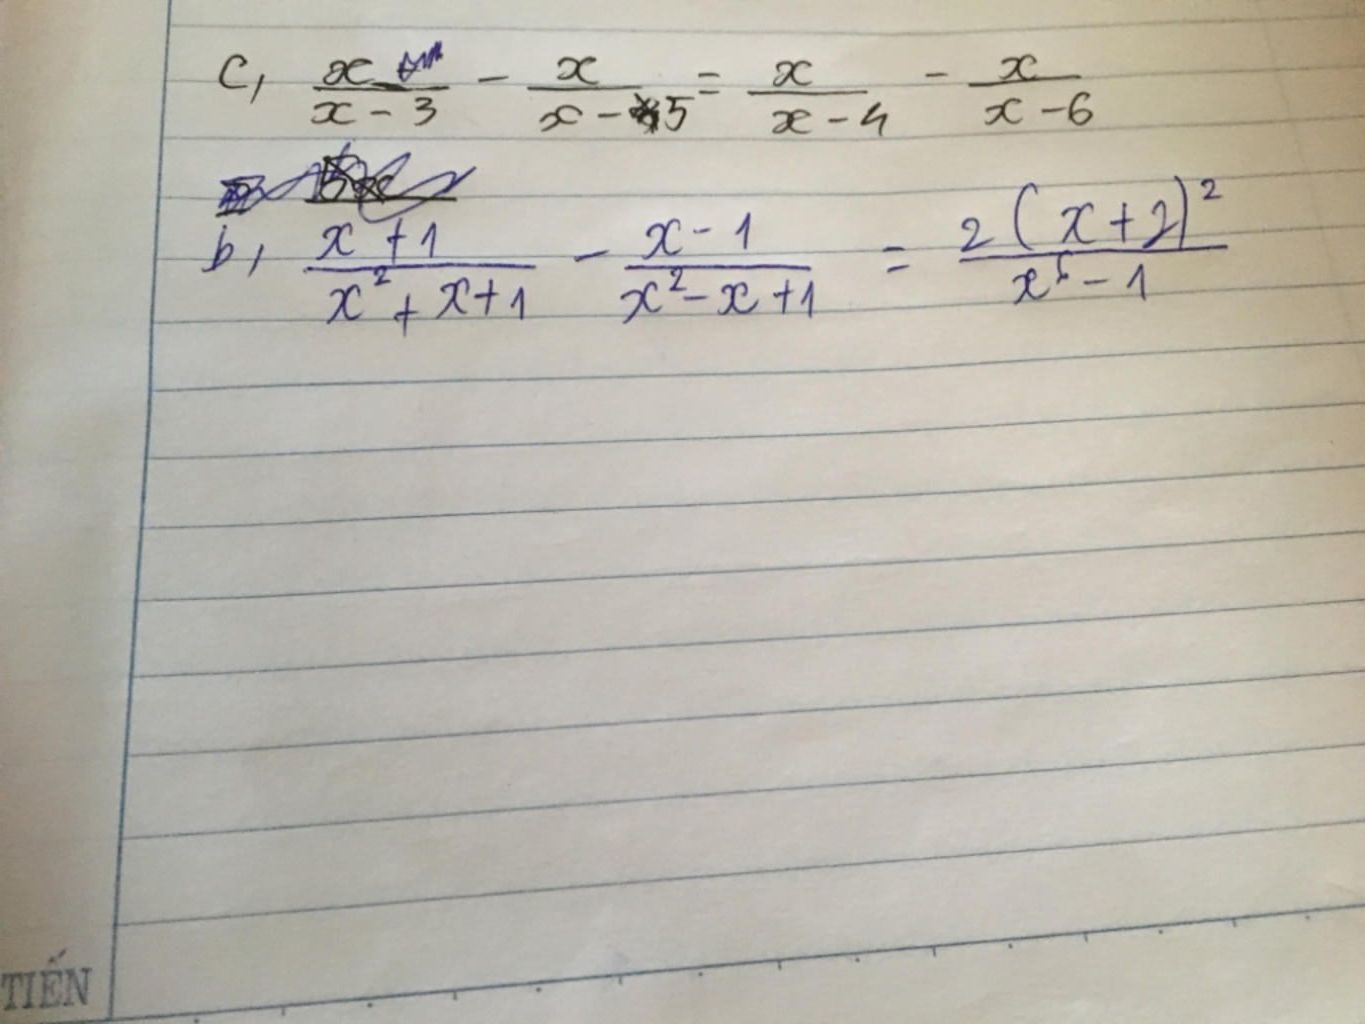 c, x/(x - 3) - x/(x - 5) = x/(x - 4) - x/(x - 6)
b, (x + 1)/(x² + x + 1) - (x - 1)/(x² - x + 1) = 2(x + 2)²/(x⁶ - 1)
TIẾN